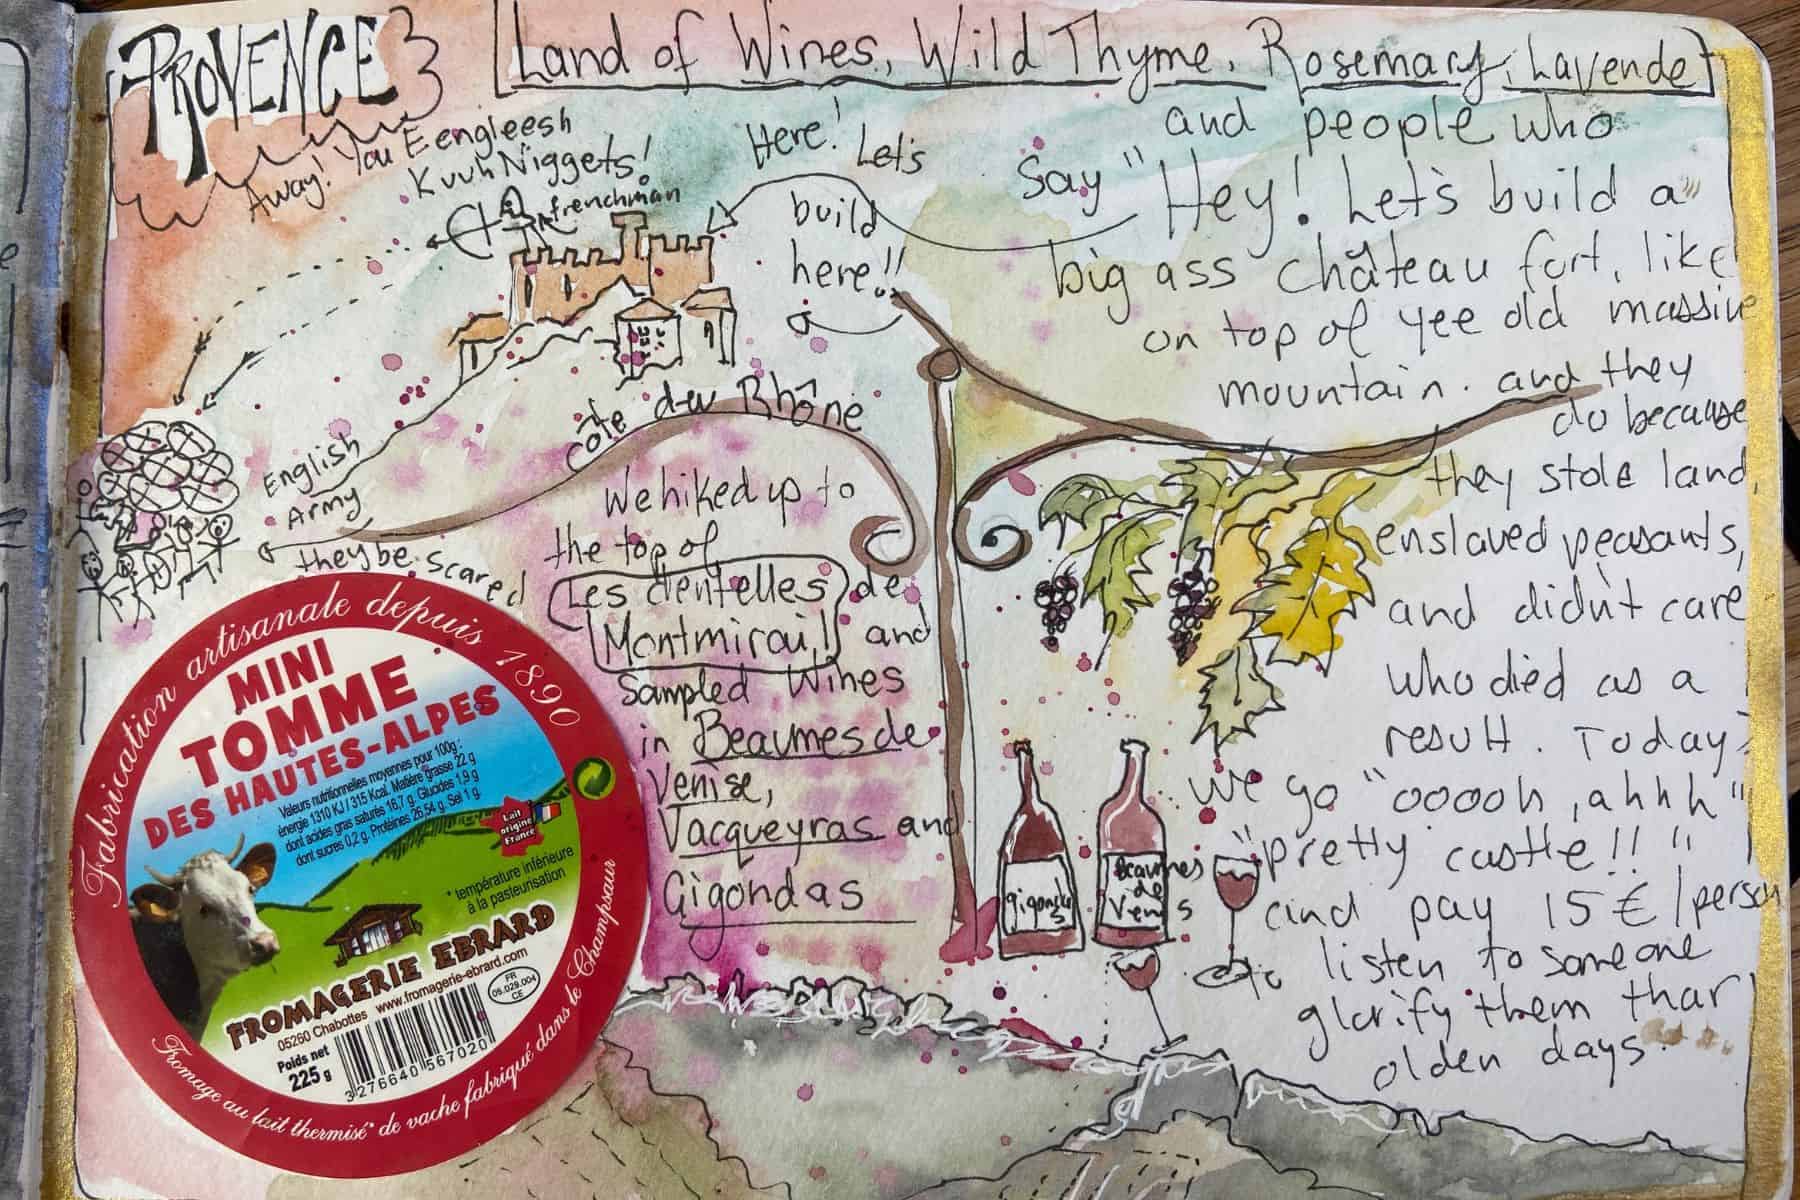 PROVENCE
Land of Wines, Wild Thyme, Rosemary, Lavender
and people who
Say "Hey! Let's build a
big ass château fort, like
on top of yee old massive
mountain. and they
do because
they stole land,
enslaved peasants,
and didn't care
who died as a
result. Today
we go "ooooh, ahhh"
"pretty castle!!"
and pay 15€/person
listen to someone
glorify them thar
olden days.
Away! You Eengleesh
Kuuh Niggets!
frenchman
Here! Let's
build
here!!
English
Army
they be scared
côte du Rhône
We hiked up to
the top of
Les dentelles de
Montmirail and
sampled wines
in Beaumes de
Venise,
Vacqueyras and
Gigondas
Gigondas
Beaumes
de
Venis
Fabrication artisanale depuis 1890
MINI
TOMME
DES HAUTES-ALPES
Valeurs nutritionnelles moyennes pour 100g :
énergie 1310 KJ / 315 Kcal. Matière grasse 22 g
dont acides gras saturés 16,7 g. Glucides 1,9 g
dont sucres 0,2 g. Protéines 26,54 g. Sel 1 g.
Lait
origine
France
* température inférieure
à la pasteurisation
FROMAGERIE EBRARD
05260 Chabottes www.fromagerie-ebrard.com
FR
05.029.004
CE
Poids net
225 g
3 276640 567020
Fromage au lait thermisé* de vache fabriqué dans le Champsaur